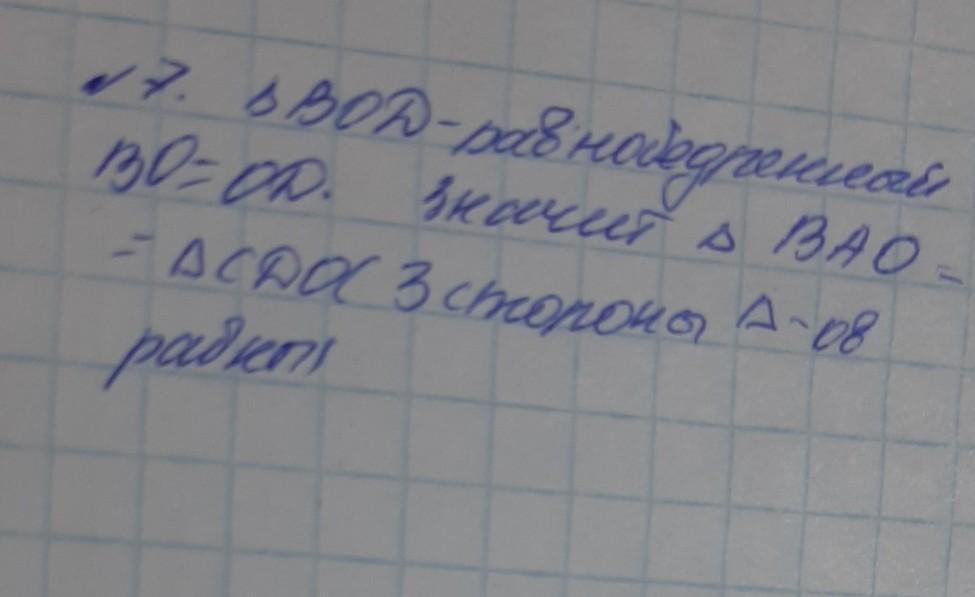 №7. Δ BOD - равнобедренный
BO = OD. Значит Δ BAO =
= Δ CDO ( 3 стороны Δ-ов
равны